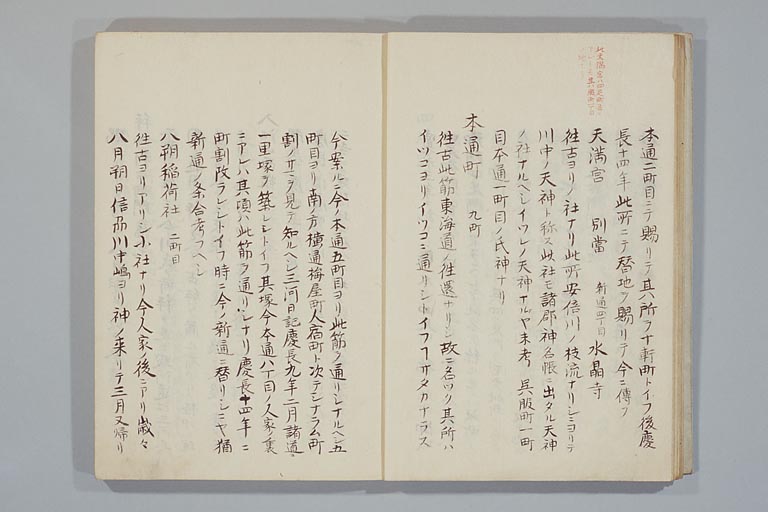 本通二町目ニテ賜リテ其所ヲ十軒町トイフ後慶
長十四年此所ニテ替地ヲ賜リテ今ニ傳フ
天満宮 別當 新通四丁目 水晶寺
往古ヨリノ社ナリ此所安倍川ノ枝流ナリシニヨリテ
川中ノ天神ト称ス此社モ諸郡神名帳ニ出タル天神
ノ社ナルヘシイツレノ天神ナルヤ未考 呉服町一町
目本通一町目ノ氏神ナリ
本通町 九町
往古此筋東海道ノ往還ナリシ故ニ名ツク其所ハ
イツコヨリイツコニ通リシトイフヿサタカナラス
今案ルニ今ノ本通五町目ヨリ此筋ノ通リシナルヘシ五
町目ヨリ南ノ方横通梅屋町人宿町ト次テシナラム町
割ノサマヲ見テ知ルヘシ三河日記慶長九年二月諸道
一里塚ヲ築レシトイフ其塚今本通八丁目ノ人家ノ裏
ニアレハ其頃ハ此筋ヲ通リシナリ慶長十四年ニ
町割改ラレシトイフ時ニ今ノ新通ニ替リシニヤ猶
新通ノ条合考フヘシ
八朔稲荷社 二町目
往古ヨリアリシ小社ナリ今人家ノ後ニアリ歳々
八月朔日信州川中嶋ヨリ神ノ来リテ三月又帰リ